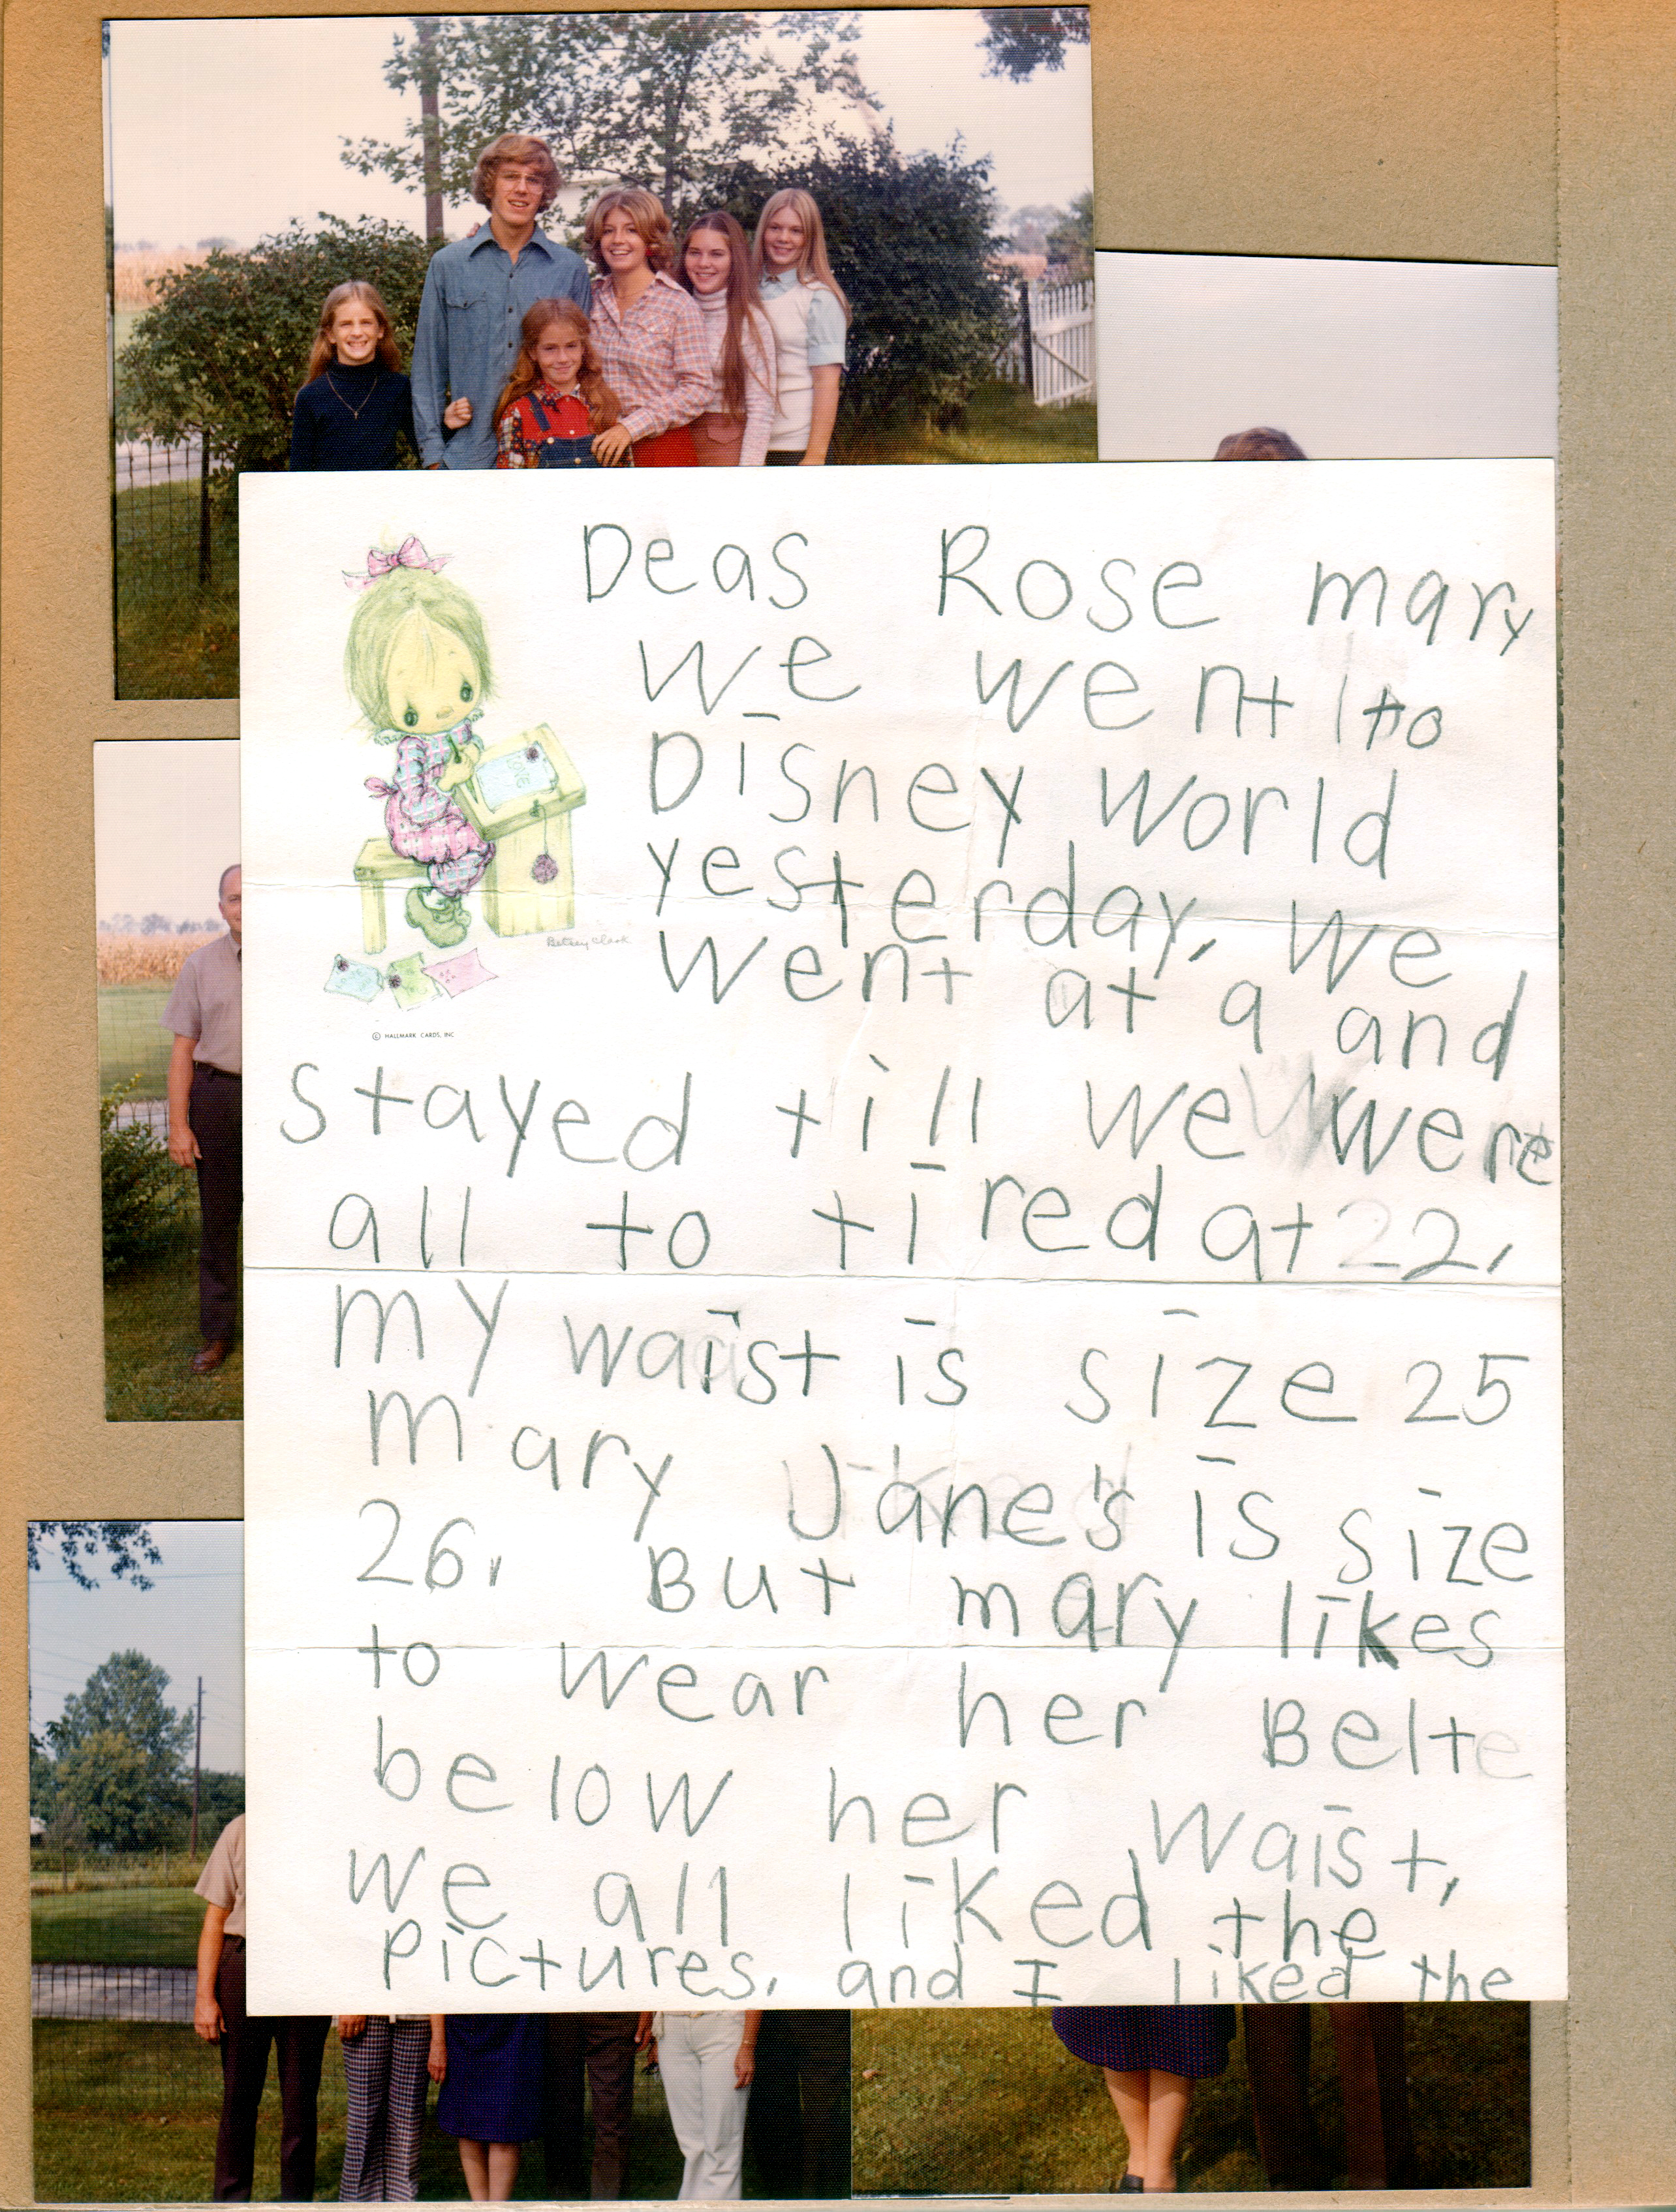 Deas Rose mary
we went to
Disney world
yesterday, we
went at 9 and
stayed till we were
all to tired at 22,
my waist is size 25
mary Jane's is size
26, But mary likes
to wear her Belte
below her waist,
we all liked the
pictures, and I liked the
LOVE
Betsey Clark
© HALLMARK CARDS, INC